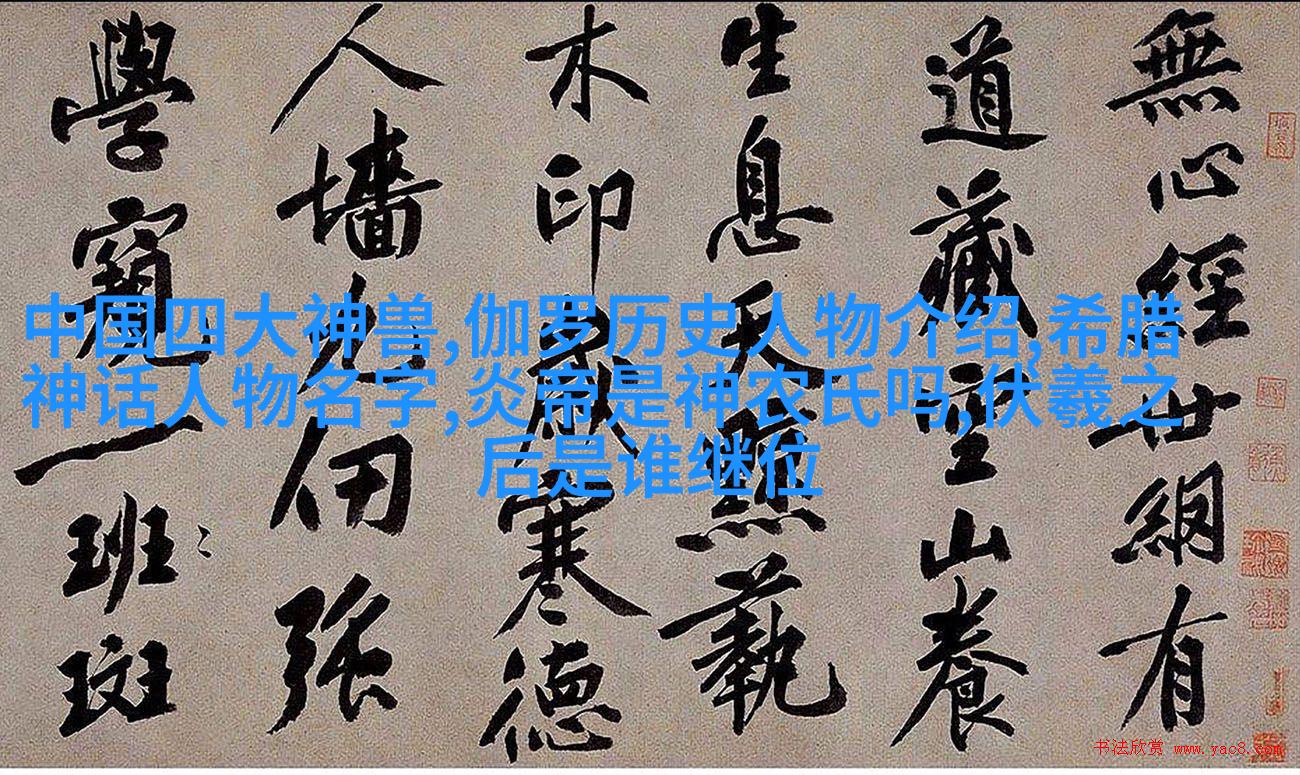 無心經世網有
道藏空山養
生息天黥執
木印最寒德
人墻九仞張
學窺一班斑
中国四大神兽,伽罗历史人物介绍,希腊
神话人物名字,炎帝是神农氏吗,伏羲之
后是谁继位
书法欣赏 www.yac8.com